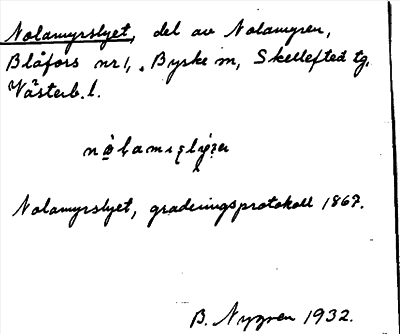 Nolamyrslyet, del av Nolamyren,
Blåfors nr 1, Byske sn, Skellefteå tg,
Västerb. l.
Nolamyrslyet, graderingsprotokoll 1867.
B. Nygren 1932.